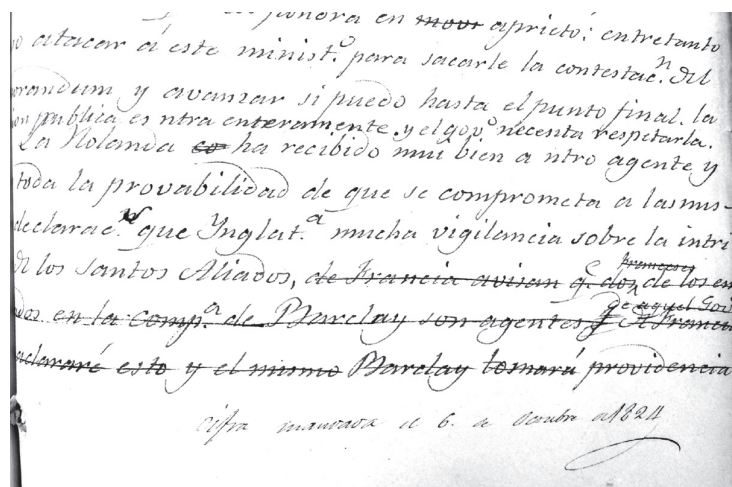 pondra en movi aprieto; entretanto
atacar á este minist.o para sacarle la contestac.n del
morandum y avanzar si puedo hasta el punto final. la
on publica es ntra enteramente. y el gov.o necesita respetarla.
La Holanda co ha recibido mui bien a ntro agente y
toda la provabilidad de que se comprometa a las mis-
declarac.s que Inglat.a mucha vigilancia sobre la intri
de los Santos Aliados, de Francia avisan q.e dos de los em
franceses
ados en la Comp.a de Barclay son agentes de Francia
de aquel Gov
aclararé esto y el mismo Barclay tomará providencia
Cifra mandada el 6. de Octubre de 1824